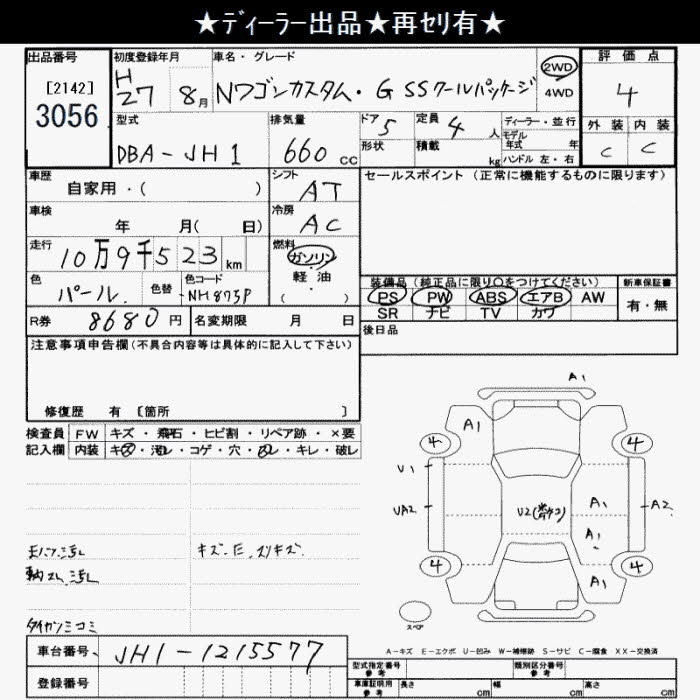 ★ディーラー出品★再セリ有★
出品番号
[2142]
3056
初度登録年月
H
27 8月
車名・グレード
Nワゴンカスタム・G SSクールパッケージ
2WD
4WD
評価点
4
外装 内装
C C
型式
DBA-JH1
排気量
660 cc
ドア 5
形状
定員 4 人
積載 kg
ディーラー・並行
モデル
年式 年
ハンドル 左・右
車歴
自家用・( )
シフト
AT
車検
年 月( 日)
冷房
AC
走行
10万9千523 km
燃料
ガソリン
軽・油
( )
色
パール
色替
色コード
NH875P
R券 8680 円
名変期限 月 日
セールスポイント(正常に機能するものに限ります)
装備品(純正品に限り○をつけてください)
PS PW ABS エアB AW
SR ナビ TV カワ
新車保証書
有・無
後日品
注意事項申告欄(不具合内容等は具体的に記入して下さい)
修復歴 有 [箇所 ]
検査員
記入欄
FW キズ・飛石・ヒビ割・リペア跡・×要
内装 キズ・汚レ・コゲ・穴・凹レ・キレ・破レ
キズ.E.スリキズ
ダイガンミコミ
車台番号 JH1-1215577
登録番号
A1
A1
4
4
U1
UA2
U2
A1
A1
A1
A2
4
4
スペア
A-キズ E-エクボ U-凹み W-補修跡 S-サビ C-腐食 XX-交換済
型式指定番号
参考
類別区分番号
参考
車庫証明用
参考
長さ cm 幅 cm 高さ cm